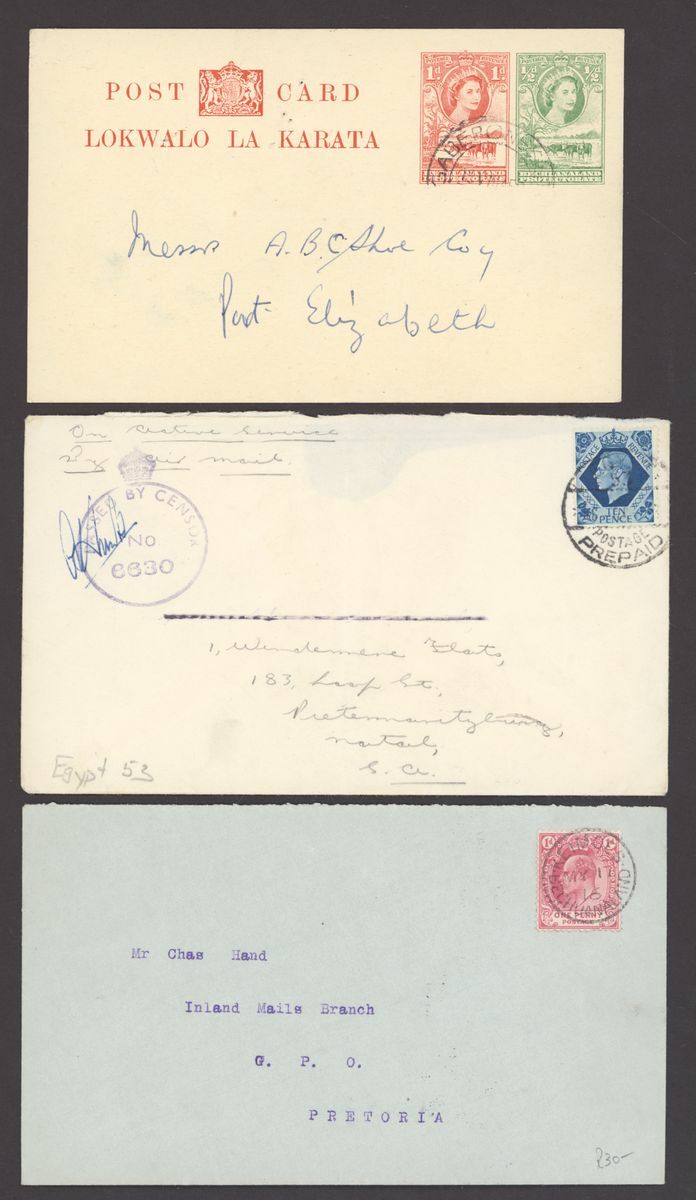 POST CARD
LOKWALO LA KARATA
POSTAGE REVENUE
1d
BECHUANALAND
PROTECTORATE
POSTAGE REVENUE
½d ½d
BECHUANALAND
PROTECTORATE
Messrs A.B.C. Shoe Coy
Port Elizabeth
On active service
By air mail.
PASSED BY CENSOR
No
6630
POSTAGE REVENUE
TEN
PENCE
POSTAGE
PREPAID
1, Windermere Flats,
183, Loop St.,
Pietermaritzburg,
Natal,
S. A.
Egypt 53
ONE PENNY
POSTAGE
BECHUANALAND
MR 11
Mr Chas Hand
Inland Mails Branch
G. P. O.
PRETORIA
R30-